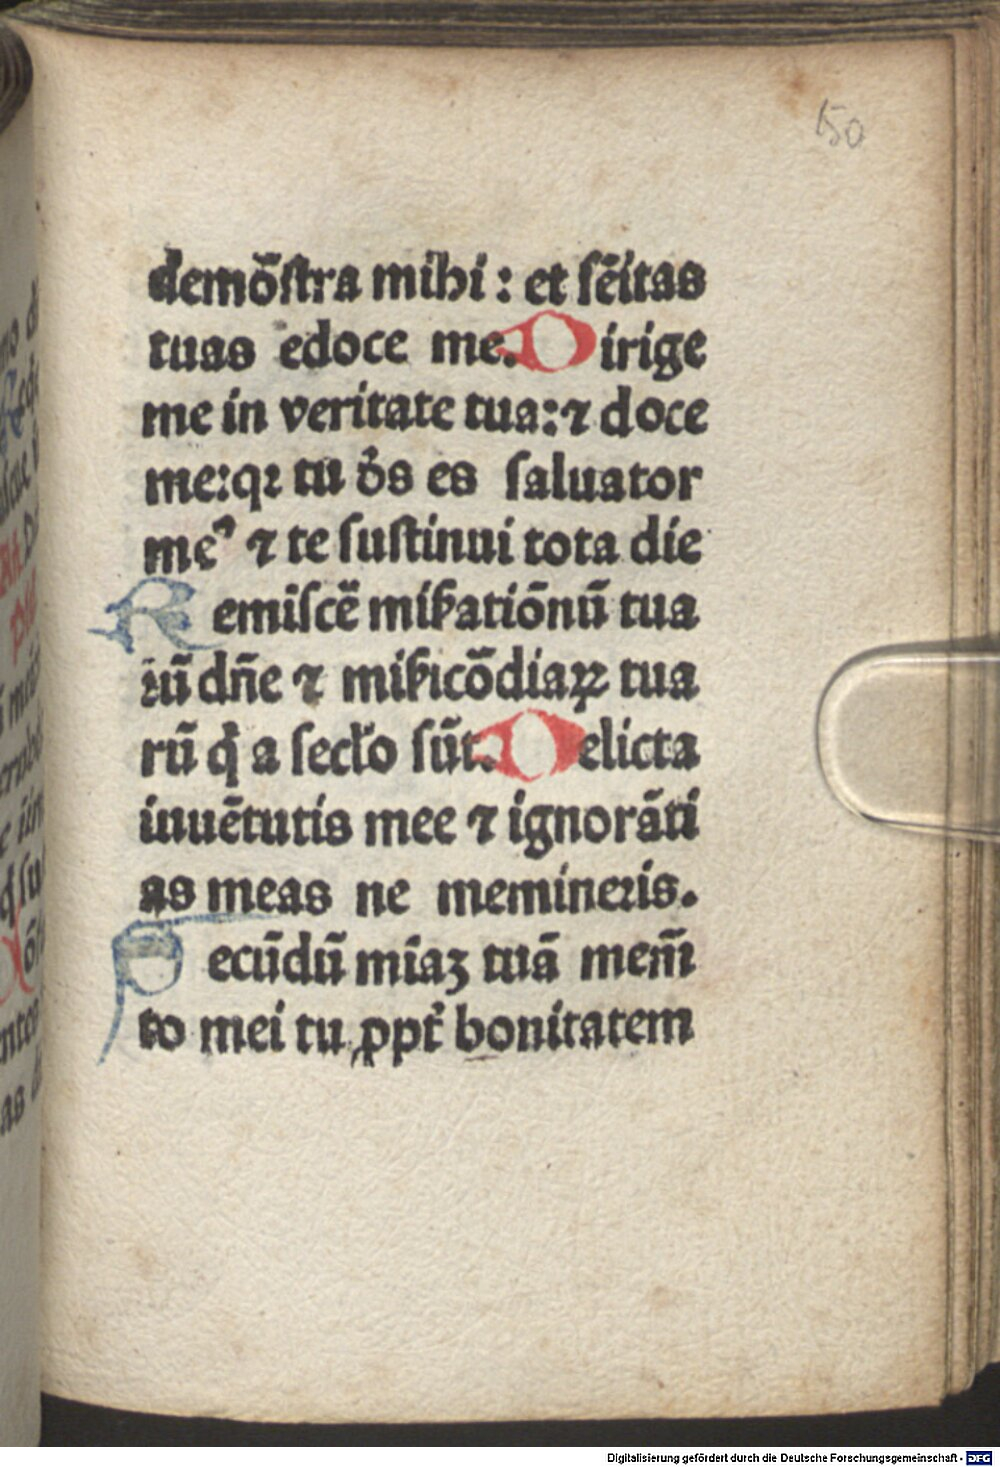 150
demõstra mihi : et sẽitas
tuas edoce me. Dirige
me in veritate tua: ⁊ doce
me: qꝛ tu d̃s es saluator
meꝰ ⁊ te sustinui tota die
Remiscẽ mis̃atiõnũ tua
ꝛũ dñe ⁊ mis̃icõdiaꝝ tua
rũ q̃ a secl̃o sũt. Delicta
iuuẽtutis mee ⁊ ignorãti
as meas ne memineris.
Secũdũ mĩaꝫ tuã mem̃
to mei tu ꝓpt̃ bonitatem
Digitalisierung gefördert durch die Deutsche Forschungsgemeinschaft - DFG